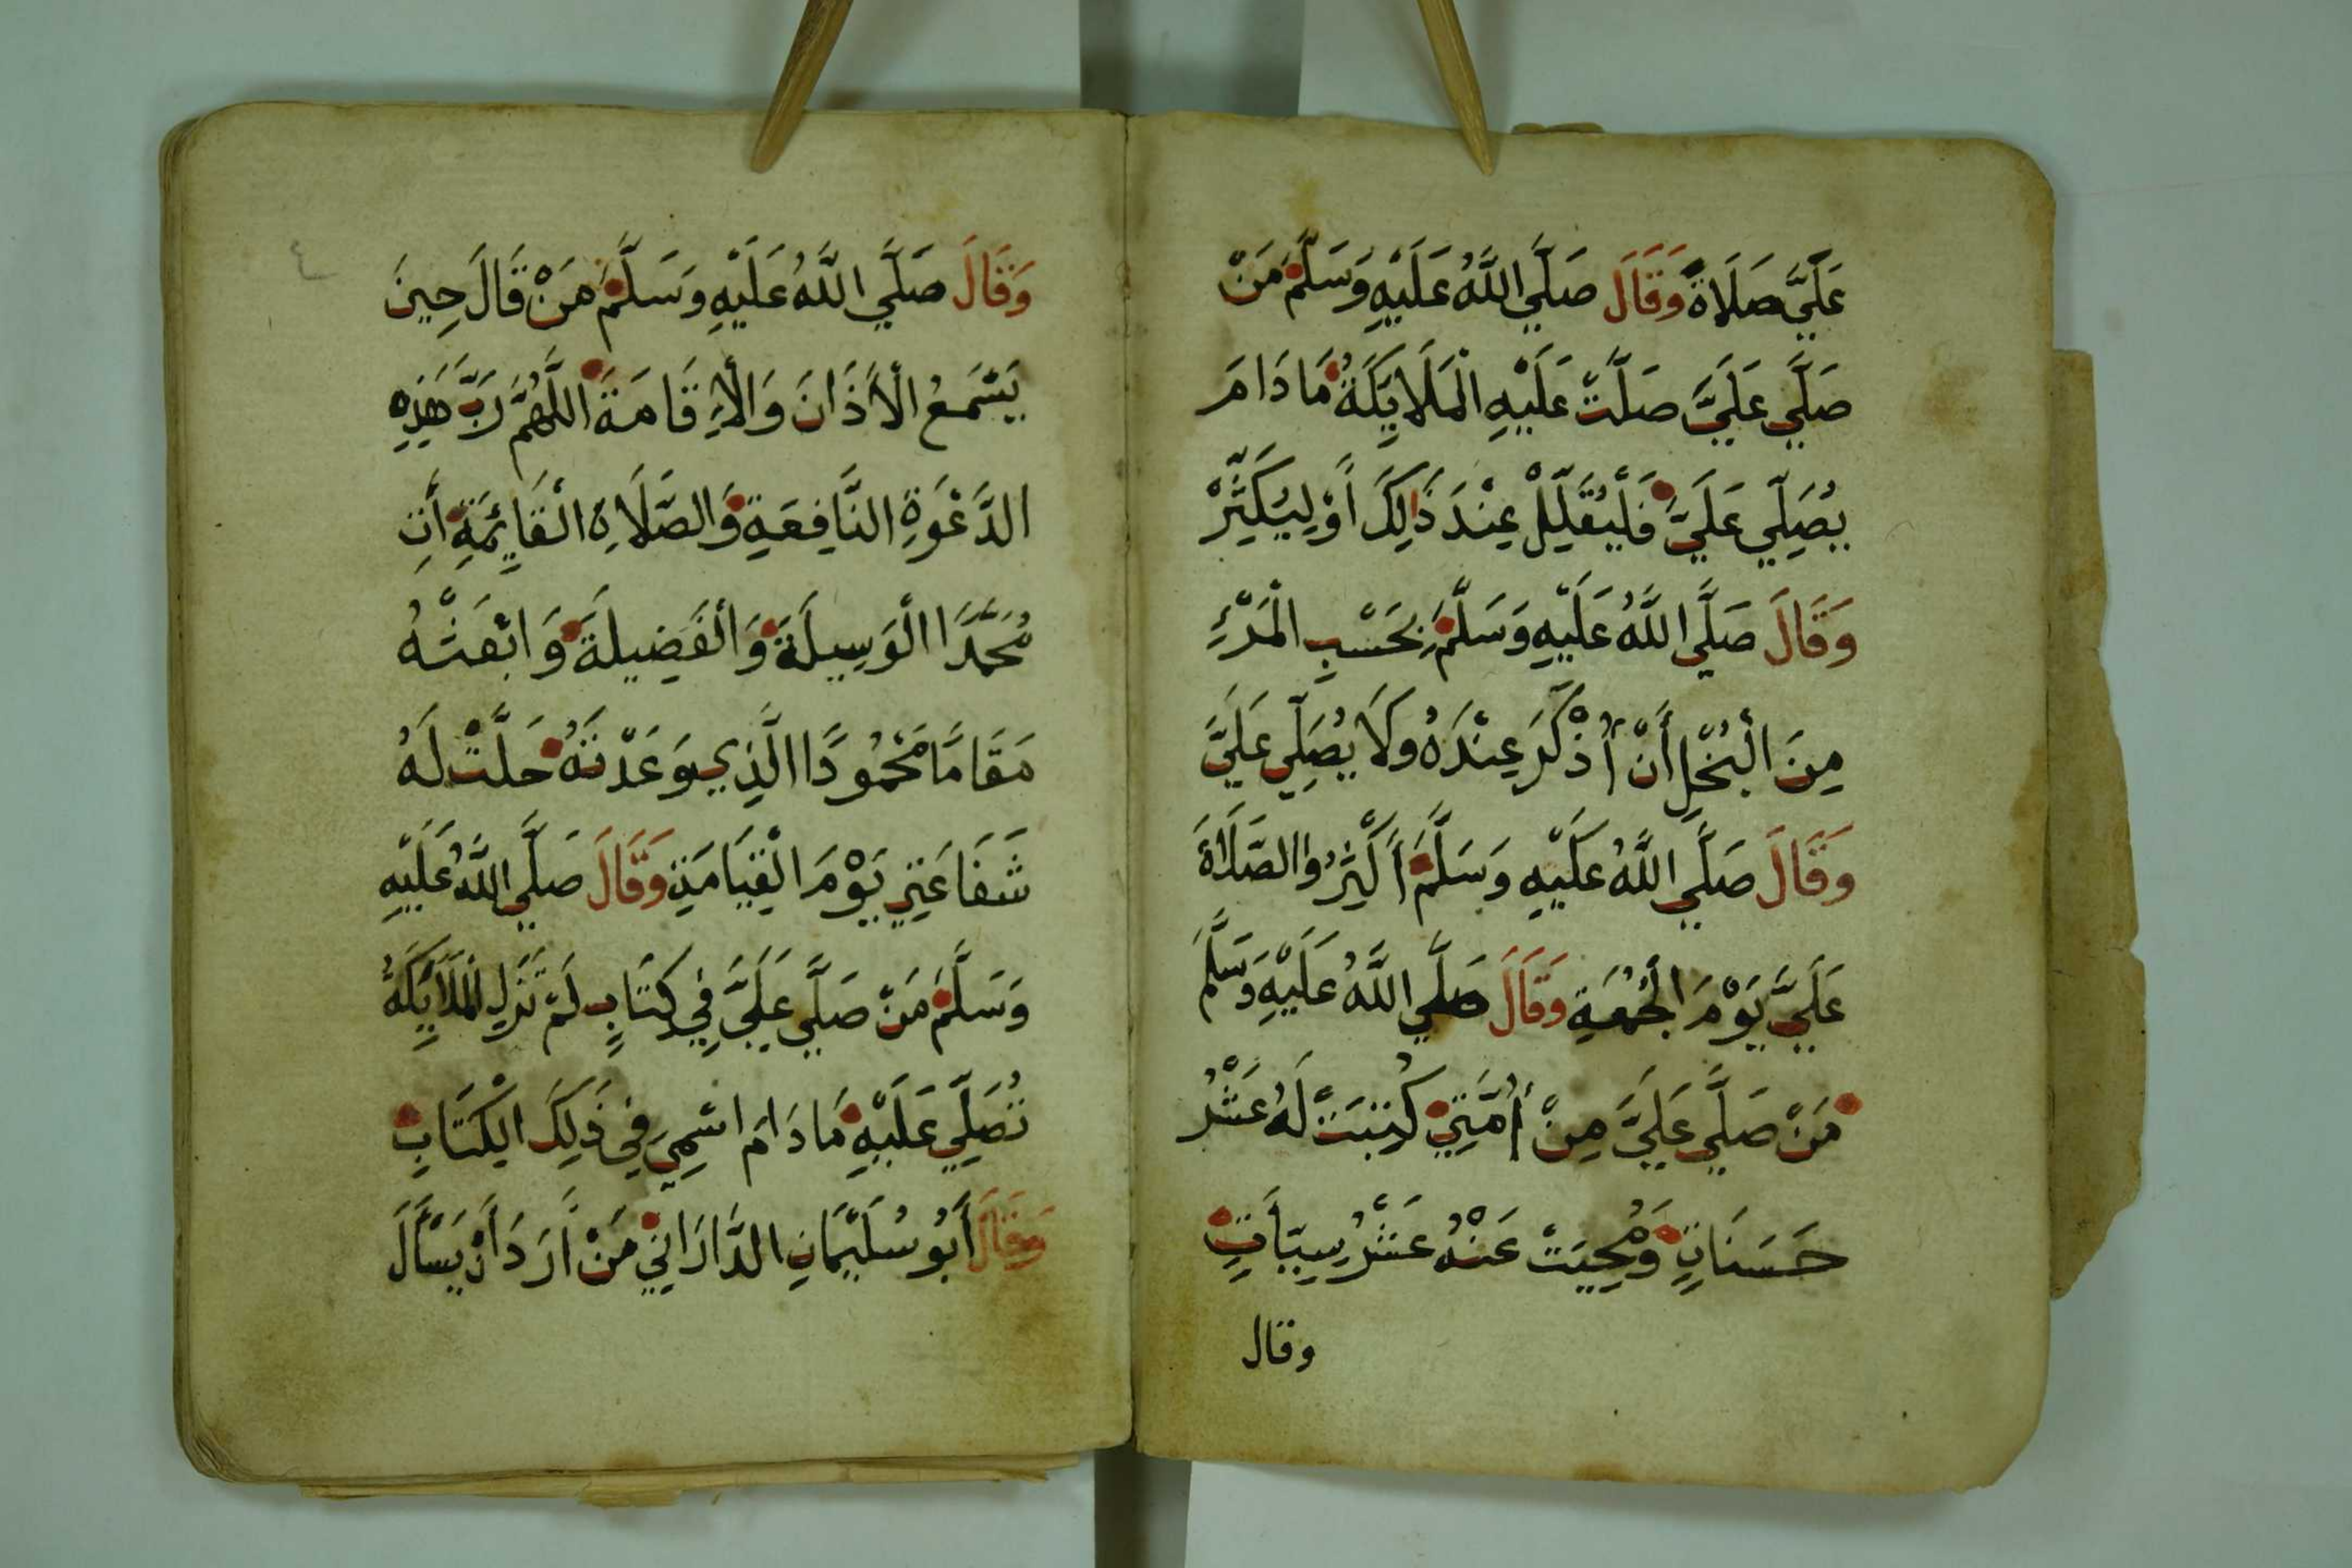 عَلَيَّ صَلَاةً وَقَالَ صَلَّي اللَّهُ عَلَيْهِ وَسَلَّمَ مَنْ
صَلَّي عَلَيَّ صَلَّتْ عَلَيْهِ الْمَلَايِكَةُ مَا دَامَ
يُصَلِّي عَلَيَّ فَلْيُقَلِّلْ عِنْدَ ذَالِكَ أَوْ لِيُكَثِّرْ
وَقَالَ صَلَّي اللَّهُ عَلَيْهِ وَسَلَّمَ بِحَسْبِ الْمَرْءِ
مِنَ الْبُخْلِ أَنْ أُذْكَرَ عِنْدَهُ وَلَا يُصَلِّي عَلَيَّ
وَقَالَ صَلَّي اللَّهُ عَلَيْهِ وَسَلَّمَ أَكْثِرُوا الصَّلَاةَ
عَلَيَّ يَوْمَ الْجُمُعَةِ وَقَالَ صَلَّي اللَّهُ عَلَيْهِ وَسَلَّمَ
مَنْ صَلَّي عَلَيَّ مِنْ أُمَّتِي كُتِبَتْ لَهُ عَشْرُ
حَسَنَاتٍ وَمُحِيَتْ عَنْهُ عَشْرُ سِيِّيَأتٍ
وقال
٤
وَقَالَ صَلَّي اللَّهُ عَلَيْهِ وَسَلَّمَ مَنْ قَالَ حِينَ
يَسْمَعُ الْأَذَانَ وَالْإِقَامَةَ اللَّهُمَّ رَبَّ هَذِهِ
الدَّعْوَةِ النَّافِعَةِ وَالصَّلَاةِ الْقَايِمَةِ أَتِ
مُحَمَّدًا الْوَسِيلَةَ وَالْفَضِيلَةَ وَابْعَثْهُ
مَقَامًا مَحْمُودًا الَّذِي وَعَدْتَهُ حَلَّتْ لَهُ
شَفَاعَتِي يَوْمَ الْقِيَامَةِ وَقَالَ صَلَّي اللَّهُ عَلَيْهِ
وَسَلَّمَ مَنْ صَلَّي عَلَيَّ فِي كِتَابٍ لَمْ تَزَلِ الْمَلَايِكَةُ
تُصَلِّي عَلَيْهِ مَا دَامَ اسْمِي فِي ذَلِكَ الْكِتَابِ
وَقَالَ أَبُو سُلَيْمَانِ الدَّارَانِي مَنْ أَرَدَ أَنْ يَسْأَلَ